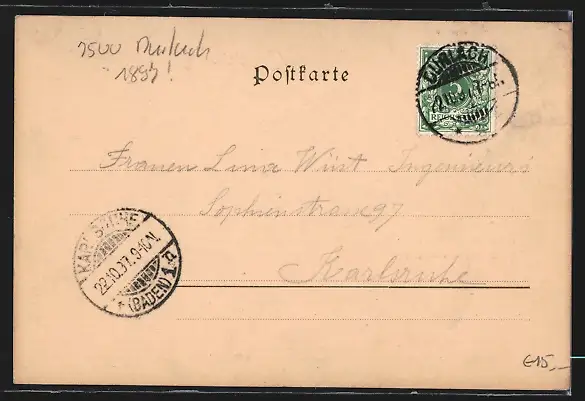 7500 Durlach
1897!
Postkarte
DURLACH
22.10.97.7-8N.
5
REICHSPOST
Frauen Lina Würt Ingenieurs
Sophienstrasse 97
Karlsruhe
KARLSRUHE
22.10.97.9-10N.
* (BADEN) 1.a
€15,-